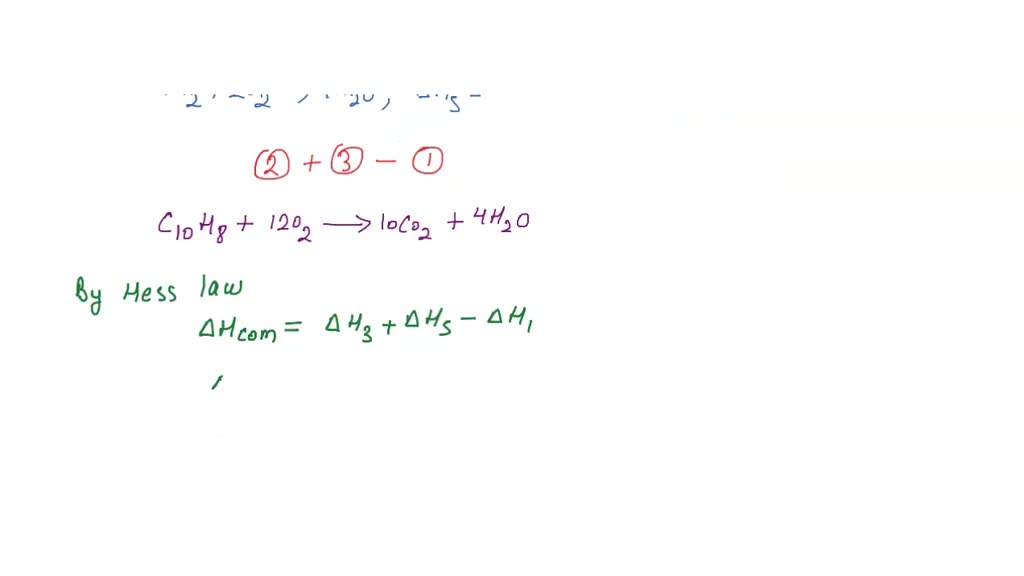 ② + ③ − ①
C₁₀H₈ + 12O₂ ⟶ 10CO₂ + 4H₂O
By Hess law
ΔHcom = ΔH₃ + ΔH₅ − ΔH₁